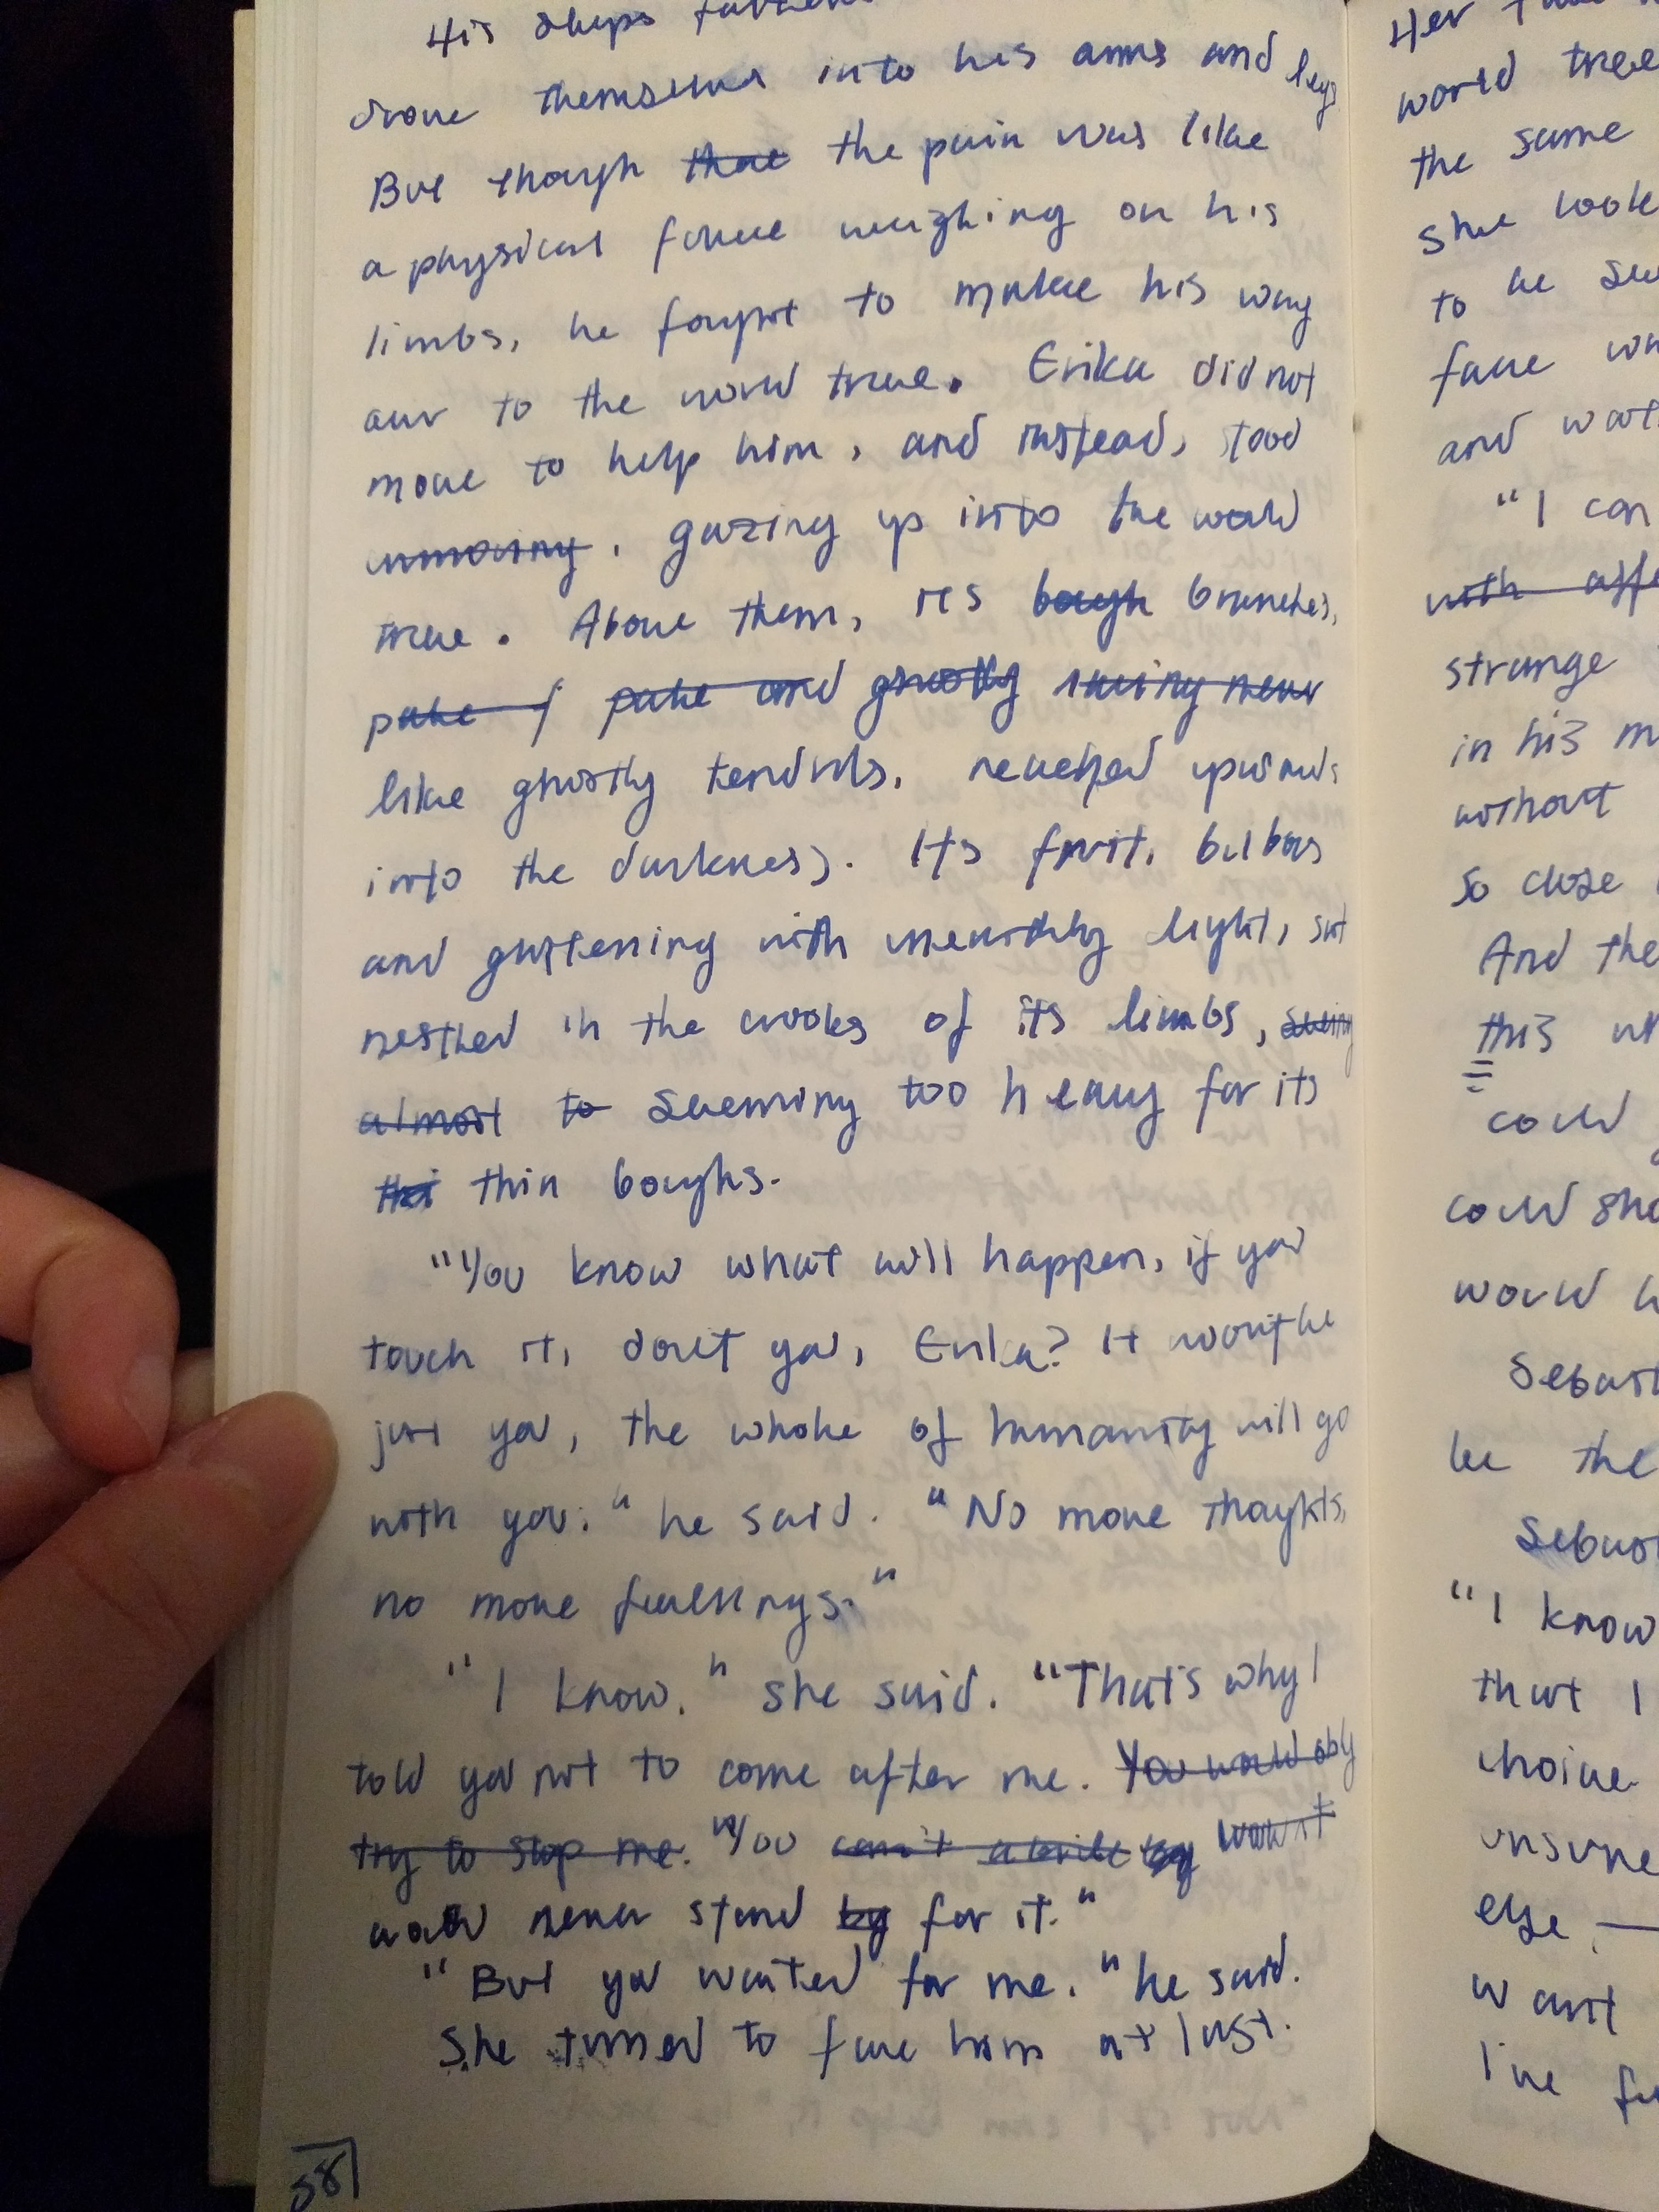 His steps
drove themselves into his arms and legs
But though that the pain was like
a physical force weighing on his
limbs, he fought to make his way
over to the world tree. Erika did not
move to help him, and instead, stood
unmoving, gazing up into the world
tree. Above them, its bough branches,
pale pale and ghostly near
like ghostly tendrils, reached upwards
into the darkness. Its fruit, bulbous
and glistening with unearthly light, sat
nestled in the crooks of its limbs, seeming
almost to seeming too heavy for its
thi thin boughs.
"You know what will happen, if you
touch it, don't you, Erika? It won't be
just you, the whole of humanity will go
with you." he said. "No more thoughts,
no more feelings."
"I know." she said. "That's why I
told you not to come after me. You would only
try to stop me. "You can't abide by won't
would never stand by for it."
"But you waited for me." he said.
She turned to face him at last.
58
Her
world tree
the same
she looke
to be
face
and
"I can
with
strange
in his m
without
so close
And the
this
could
could
would
Sebast
be the
Sebast
"I know
that I
choice
else —
want
I've